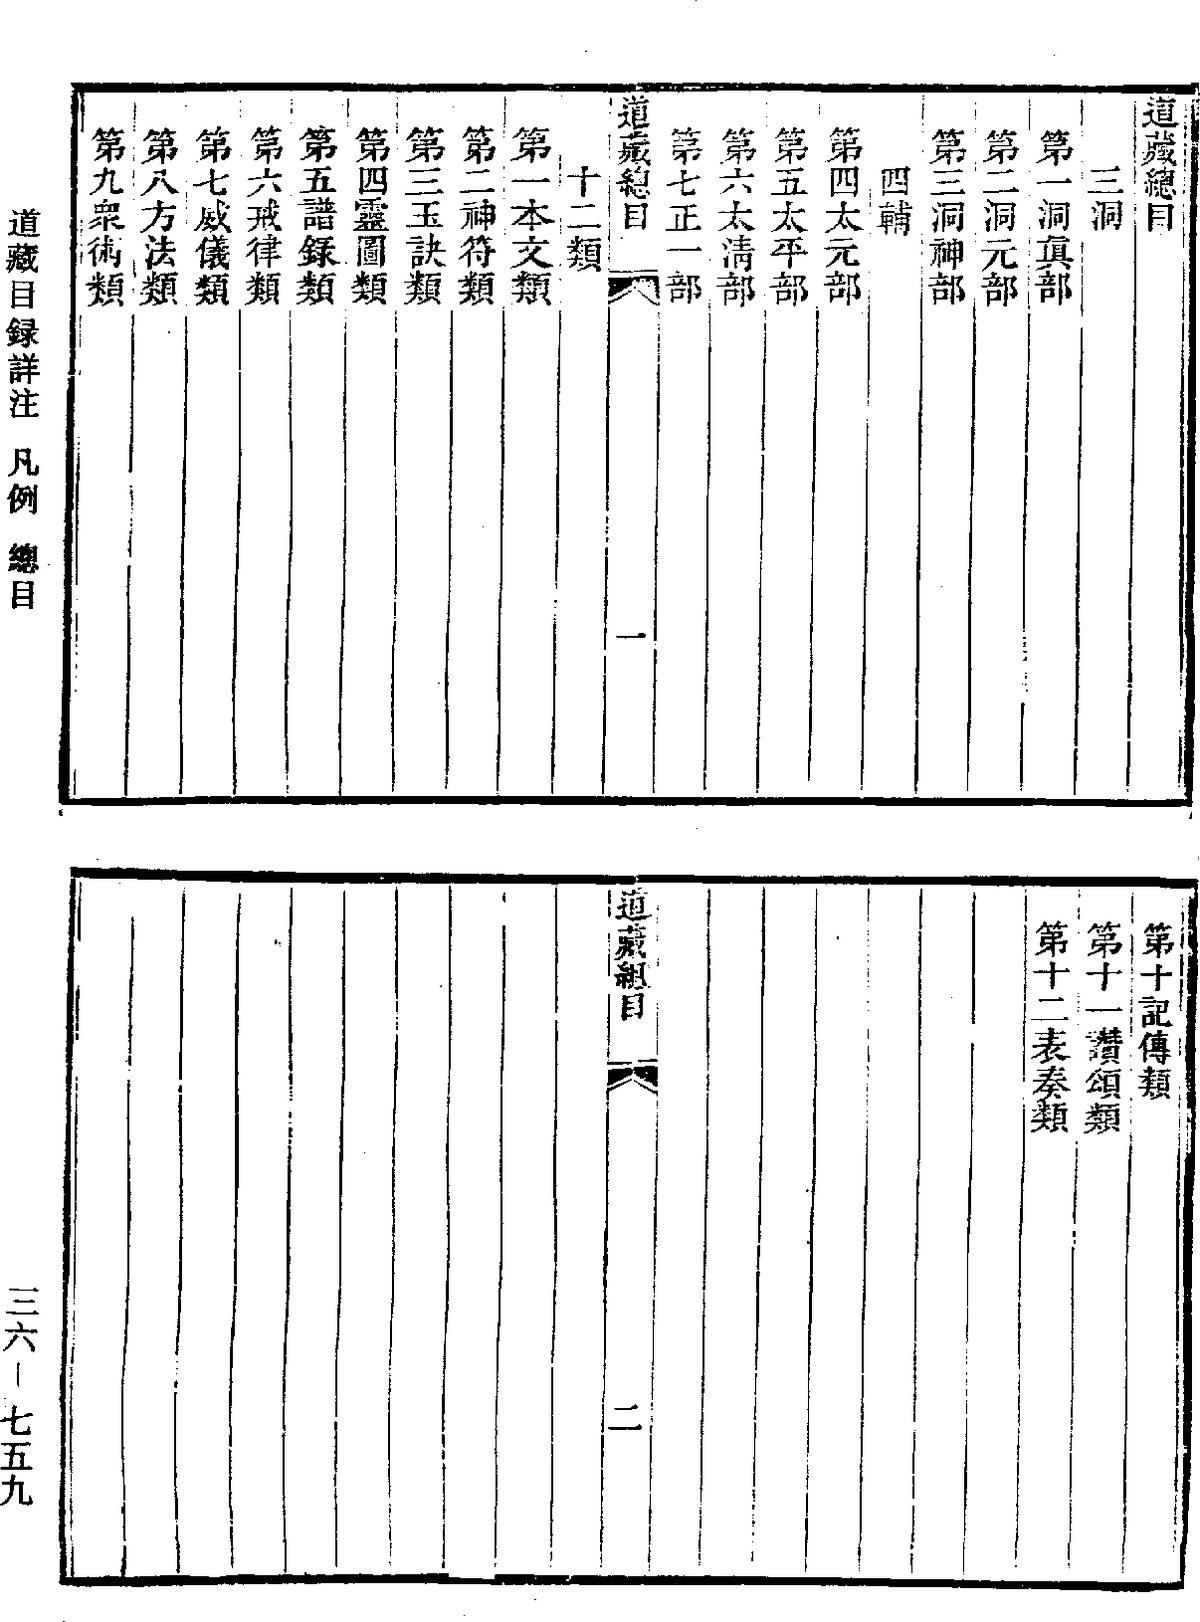 道藏總目
三洞
第一洞眞部
第二洞元部
第三洞神部
四輔
第四太元部
第五太平部
第六太淸部
第七正一部
道藏總目
一
十二類
第一本文類
第二神符類
第三玉訣類
第四靈圖類
第五譜錄類
第六戒律類
第七威儀類
第八方法類
第九衆術類
道藏目録詳注 凡例 總目
第十記傳類
第十一讚頌類
第十二表奏類
道藏總目
二
三六－七五九